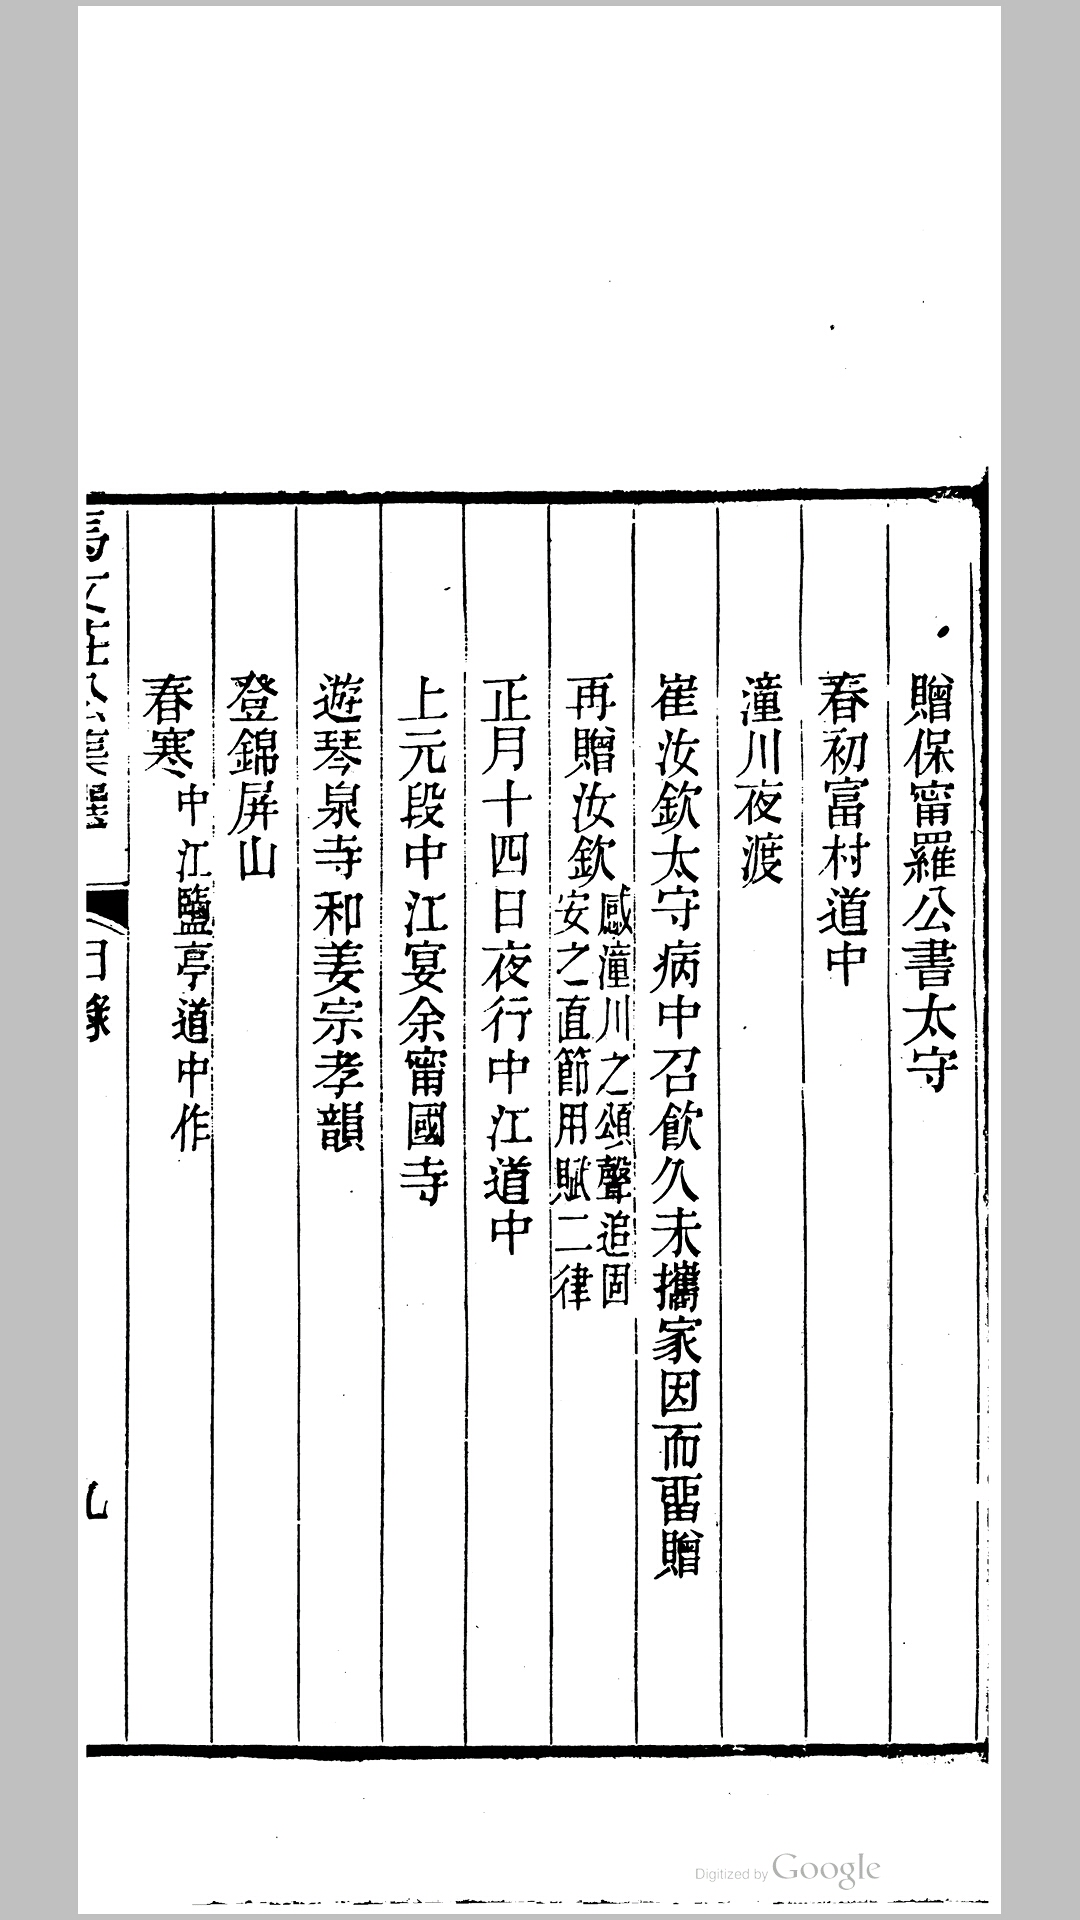 贈保甯羅公書太守
春初富村道中
潼川夜渡
崔汝欽太守病中召飲久未攜家因而畱贈
再贈汝欽感潼川之頌聲追固安之直節用賦二律
正月十四日夜行中江道中
上元段中江宴余甯國寺
遊琴泉寺和姜宗孝韻
登錦屏山
春寒中江鹽亭道中作
馬文莊公集選
目錄
九
Digitized by Google